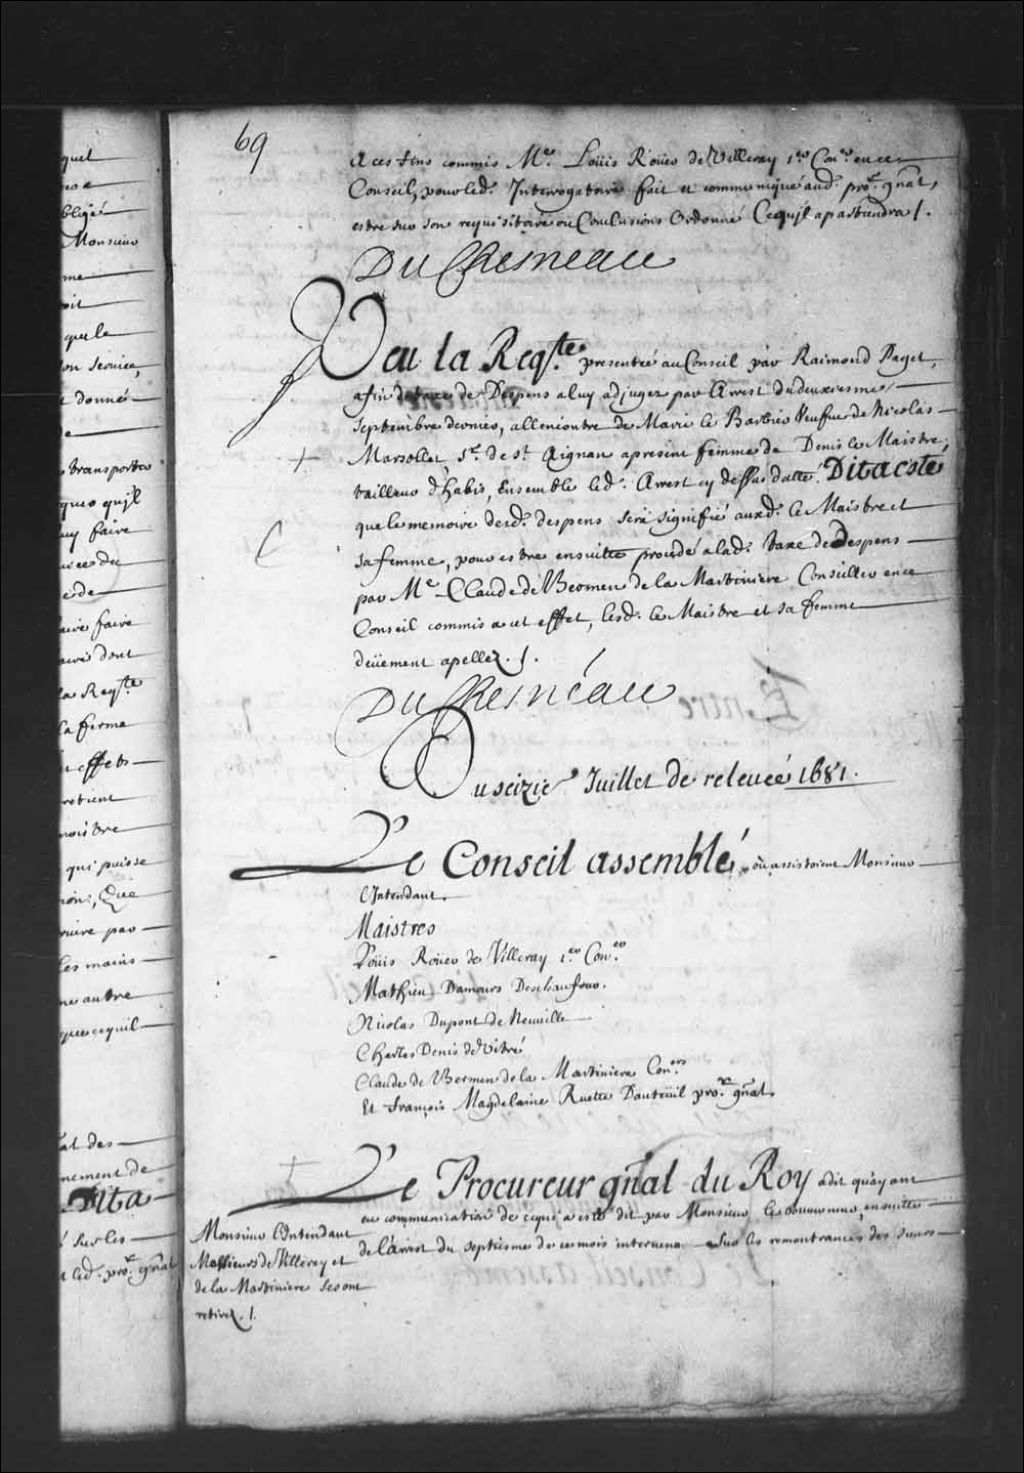 69
A ces fins commis Me. Loüis Roüer de Villeray 1er. Coner. en ce
Conseil, pour led. Interrogatoire fait et communiqué aud. pror. gnal,
estre sur son requisitoire ou Conclusions Ordonné Ce quil apartiendra /.
DuChesneau
Veu la Reqte. presentée au Conseil par Raimond Paget,
afin de taxe de Despens a luy adjugez par Arrest du deuxiesme
Septembre dernier, allencontre de Marie le Barbier Veufue de Nicolas
Marsollet Sr. de St. Aignan apresent femme de Denis le Maistre,
tailleur d'habis, Ensemble led. Arrest cy dessus datté. Dit a esté
que le memoire desd. despens sera signifié auxd. le Maistre et
sa femme, pour estre ensuitte procedé a lad. taxe de despens
par Me. Claude de Bermen de la Martiniere Conseiller en ce
Conseil commis a cet effet, lesd. le Maistre et sa femme
deüement apellez. /.
DuChesneau
Du seizie. Juillet de releueé 1681.
Le Conseil assemblé, où assistoient Monsieur
L'Intendant.
Maistres
Loüis Roüer de Villeray 1er. Coner.
Mathieu Damours Deschaufour.
Nicolas Dupont de Neuuille
Charles Denis de Vitré
Claude de Bermen de la Martiniere Coners.
Et François Magdelaine Ruette Dauteüil pror. gnal.
Le Procureur gnal du Roy a dit qu'ayant
eu communication de ce qui a esté dit par Monsieur le Gouuerneur, ensuitte
de l'arrest du septiesme de ce mois interuenu sur les remontrances des Sieurs
Monsieur L'Intendant
Messieurs de Villerey et
de la Martiniere se sont
retirez. /.
quel
obligé
Monsieur
me
oit
que le
son seruice,
donné
transporter
quoy qu'il
luy faire
faire
dont
la Reqte
la ferme
effets
retient
qui puisse
Que
par
les mains
autre
que ce quil
des
nement de
Dit a
sur les
led. pror. gnal